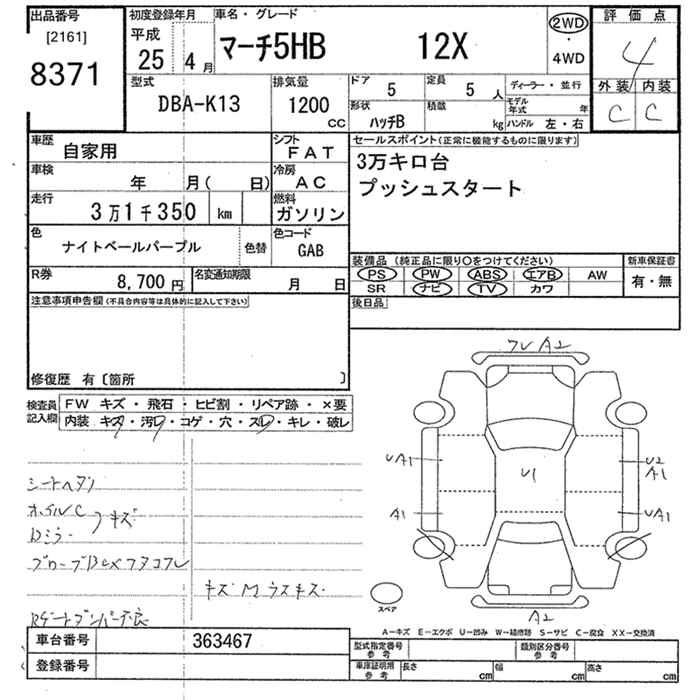 出品番号
[2161]
8371
初度登録年月
平成
25年
4月
車名・グレード
マーチ5HB 12X
2WD
・
4WD
評価点
4
外装 内装
C C
型式
DBA-K13
排気量
1200
CC
ドア
5
定員
5人
ディーラー・並行
形状
ハッチB
積載
kg
モデル年式 年
ハンドル 左・右
車歴
自家用
シフト
FAT
セールスポイント(正常に機能するものに限ります)
3万キロ台
プッシュスタート
車検
年 月( 日)
冷房
AC
走行
3万1千350 km
燃料
ガソリン
色
ナイトベールパープル
色替
色コード
GAB
装備品(純正品に限り○をつけてください)
PS PW ABS エアB AW
SR ナビ TV カワ
新車保証書
有・無
R券
8,700円
名変通知期限
月 日
後日品
注意事項申告欄(不具合内容等は具体的に記入して下さい)
修復歴 有〔箇所 〕
検査員記入欄
FW キズ・飛石・ヒビ割・リペア跡・×要
内装 キズ・汚レ・コゲ・穴・スレ・キレ・破レ
シートヘタリ
キズ
キズM ウスキズ
A2
UA1
U1
U2
A1
A1
UA1
A2
スペア
A-キズ E-エクボ U-凹み W-補修跡 S-サビ C-腐食 XX-交換済
車台番号
363467
登録番号
型式指定番号
参考
類別区分番号
参考
車庫証明用
参考
長さ cm
幅 cm
高さ cm